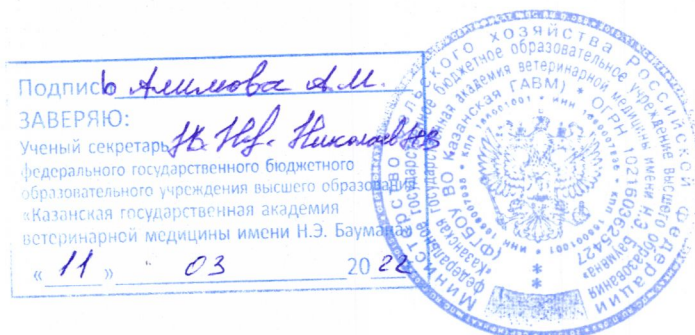 Подпись Алимова А.М.
ЗАВЕРЯЮ:
Ученый секретарь Николаев Н.В.
федерального государственного бюджетного
образовательного учреждения высшего образования
«Казанская государственная академия
ветеринарной медицины имени Н.Э. Баумана»
«11» 03 2022
Министерство сельского хозяйства Российской Федерации
федеральное государственное бюджетное образовательное учреждение высшего образования
«Казанская государственная академия ветеринарной медицины имени Н.Э. Баумана»
(ФГБОУ ВО Казанская ГАВМ) * ОГРН 1021603625427